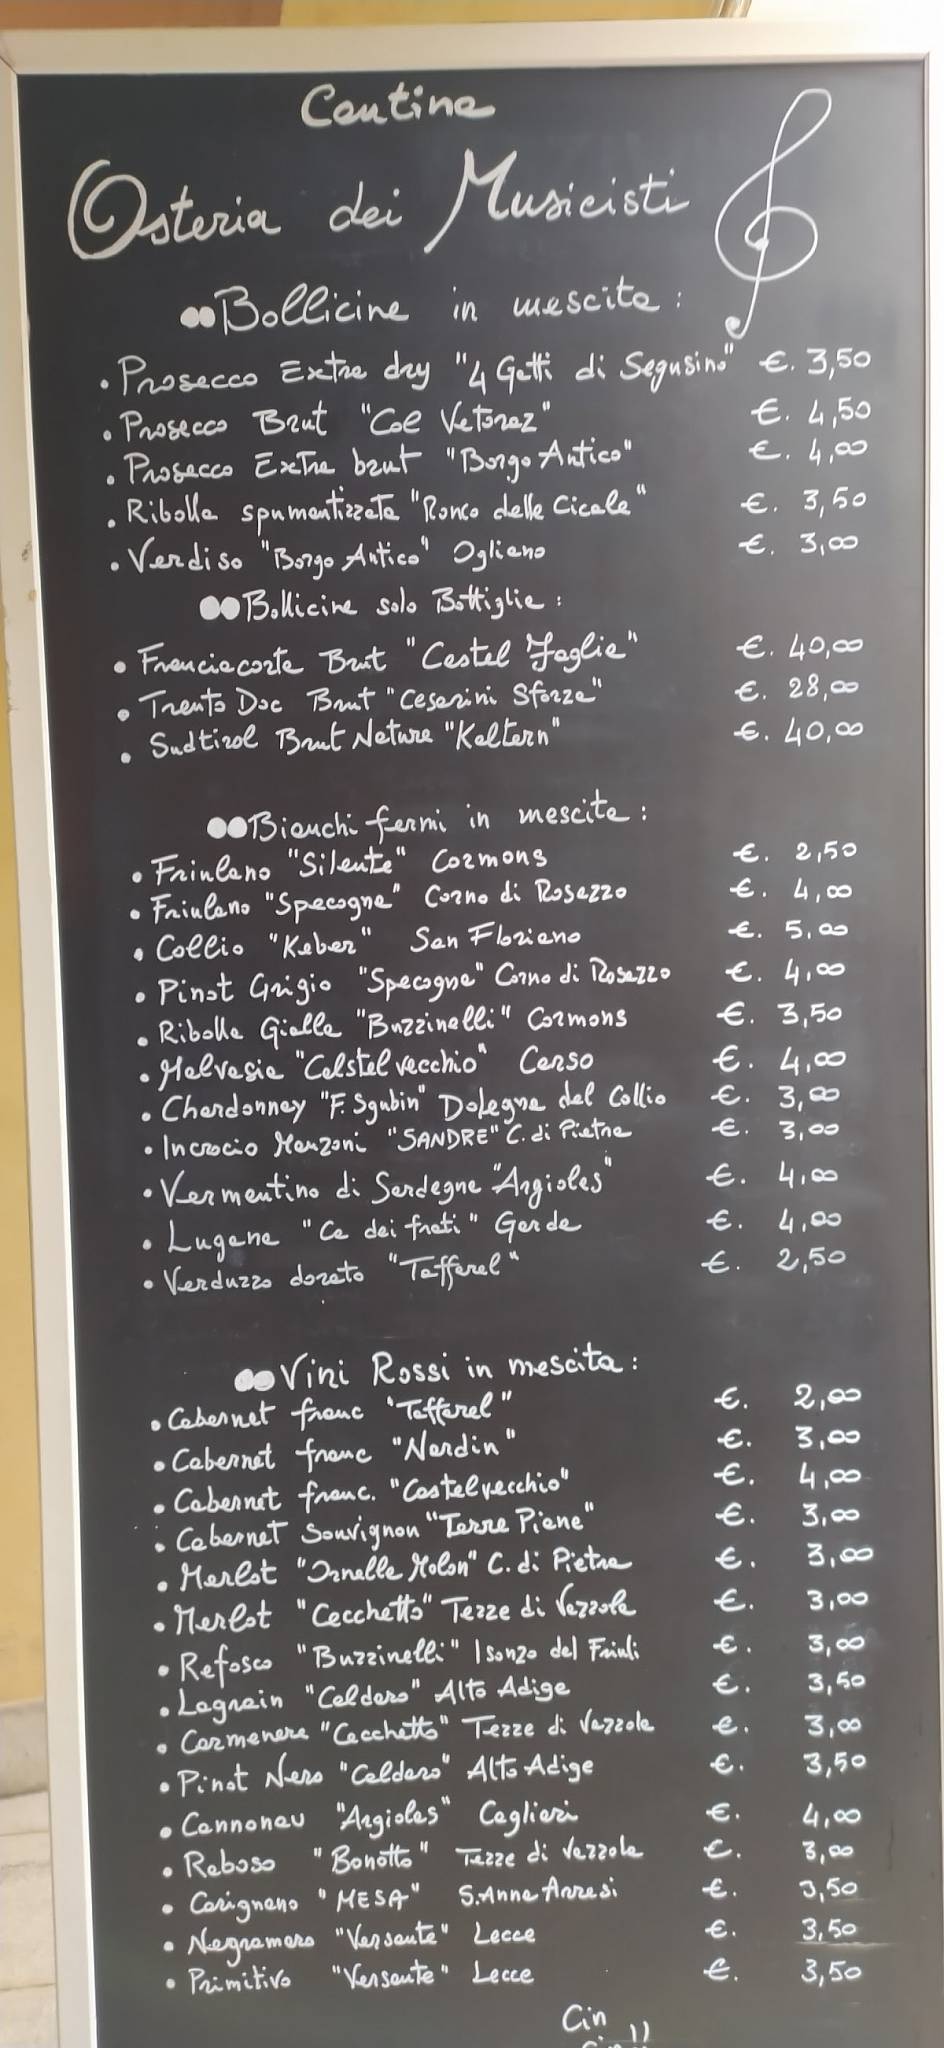 Cantina
Osteria dei Musicisti
Bollicine in mescita:
• Prosecco Extra dry "4 Gatti di Segusino" €. 3,50
• Prosecco Brut "Col Vetoraz" €. 4,50
• Prosecco Extra brut "Borgo Antico" €. 4,00
• Ribolla spumantizzata "Ronco delle Cicale" €. 3,50
• Verdiso "Borgo Antico" Ogliano €. 3,00
Bollicine solo Bottiglia:
• Franciacorta Brut "Castel Faglia" €. 40,00
• Trento Doc Brut "Cesarini Sforza" €. 28,00
• Sudtirol Brut Nature "Kaltern" €. 40,00
Bianchi fermi in mescita:
• Friulano "Silente" Cormons €. 2,50
• Friulano "Specogna" Corno di Rosazzo €. 4,00
• Collio "Keber" San Floriano €. 5,00
• Pinot Grigio "Specogna" Corno di Rosazzo €. 4,00
• Ribolla Gialla "Buzzinelli" Cormons €. 3,50
• Malvasia "Calstelvecchio" Carso €. 4,00
• Chardonnay "F. Sgubin" Dolegna del Collio €. 3,00
• Incrocio Manzoni "SANDRE" C. di Pietra €. 3,00
• Vermentino di Sardegna "Argiolas" €. 4,00
• Lugana "Ca dei frati" Garda €. 4,00
• Verduzzo dorato "Taffarel" €. 2,50
Vini Rossi in mescita:
• Cabernet franc "Taffarel" €. 2,00
• Cabernet franc "Nardin" €. 3,00
• Cabernet franc. "Castelvecchio" €. 4,00
• Cabernet Sauvignon "Terre Piane" €. 3,00
• Merlot "Ornella Molon" C. di Pietra €. 3,00
• Merlot "Cecchetto" Tezze di Vazzola €. 3,00
• Refosco "Buzzinelli" Isonzo del Friuli €. 3,00
• Lagrain "Caldaro" Alto Adige €. 3,50
• Carmenere "Cecchetto" Tezze di Vazzola €. 3,00
• Pinot Nero "Caldaro" Alto Adige €. 3,50
• Cannonau "Argiolas" Cagliari €. 4,00
• Raboso "Bonotto" Tezze di Vazzola €. 3,00
• Carignano "MESA" S.Anna Arresi €. 3,50
• Negramaro "Versante" Lecce €. 3,50
• Primitivo "Versante" Lecce €. 3,50
Cin
Cin!!